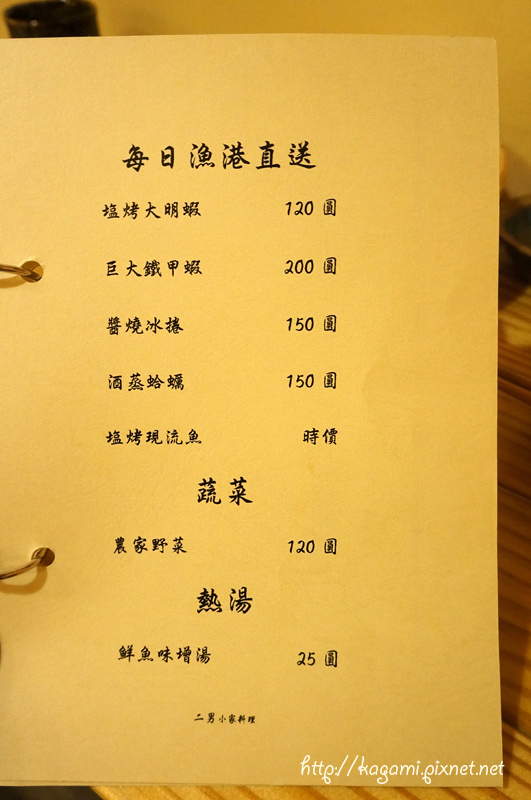 每日漁港直送
塩烤大明蝦 120 圓
巨大鐵甲蝦 200 圓
醬燒冰捲 150 圓
酒蒸蛤蠣 150 圓
塩烤現流魚 時價
蔬菜
農家野菜 120 圓
熱湯
鮮魚味增湯 25 圓
二男小家料理
http://kagami.pixnet.net